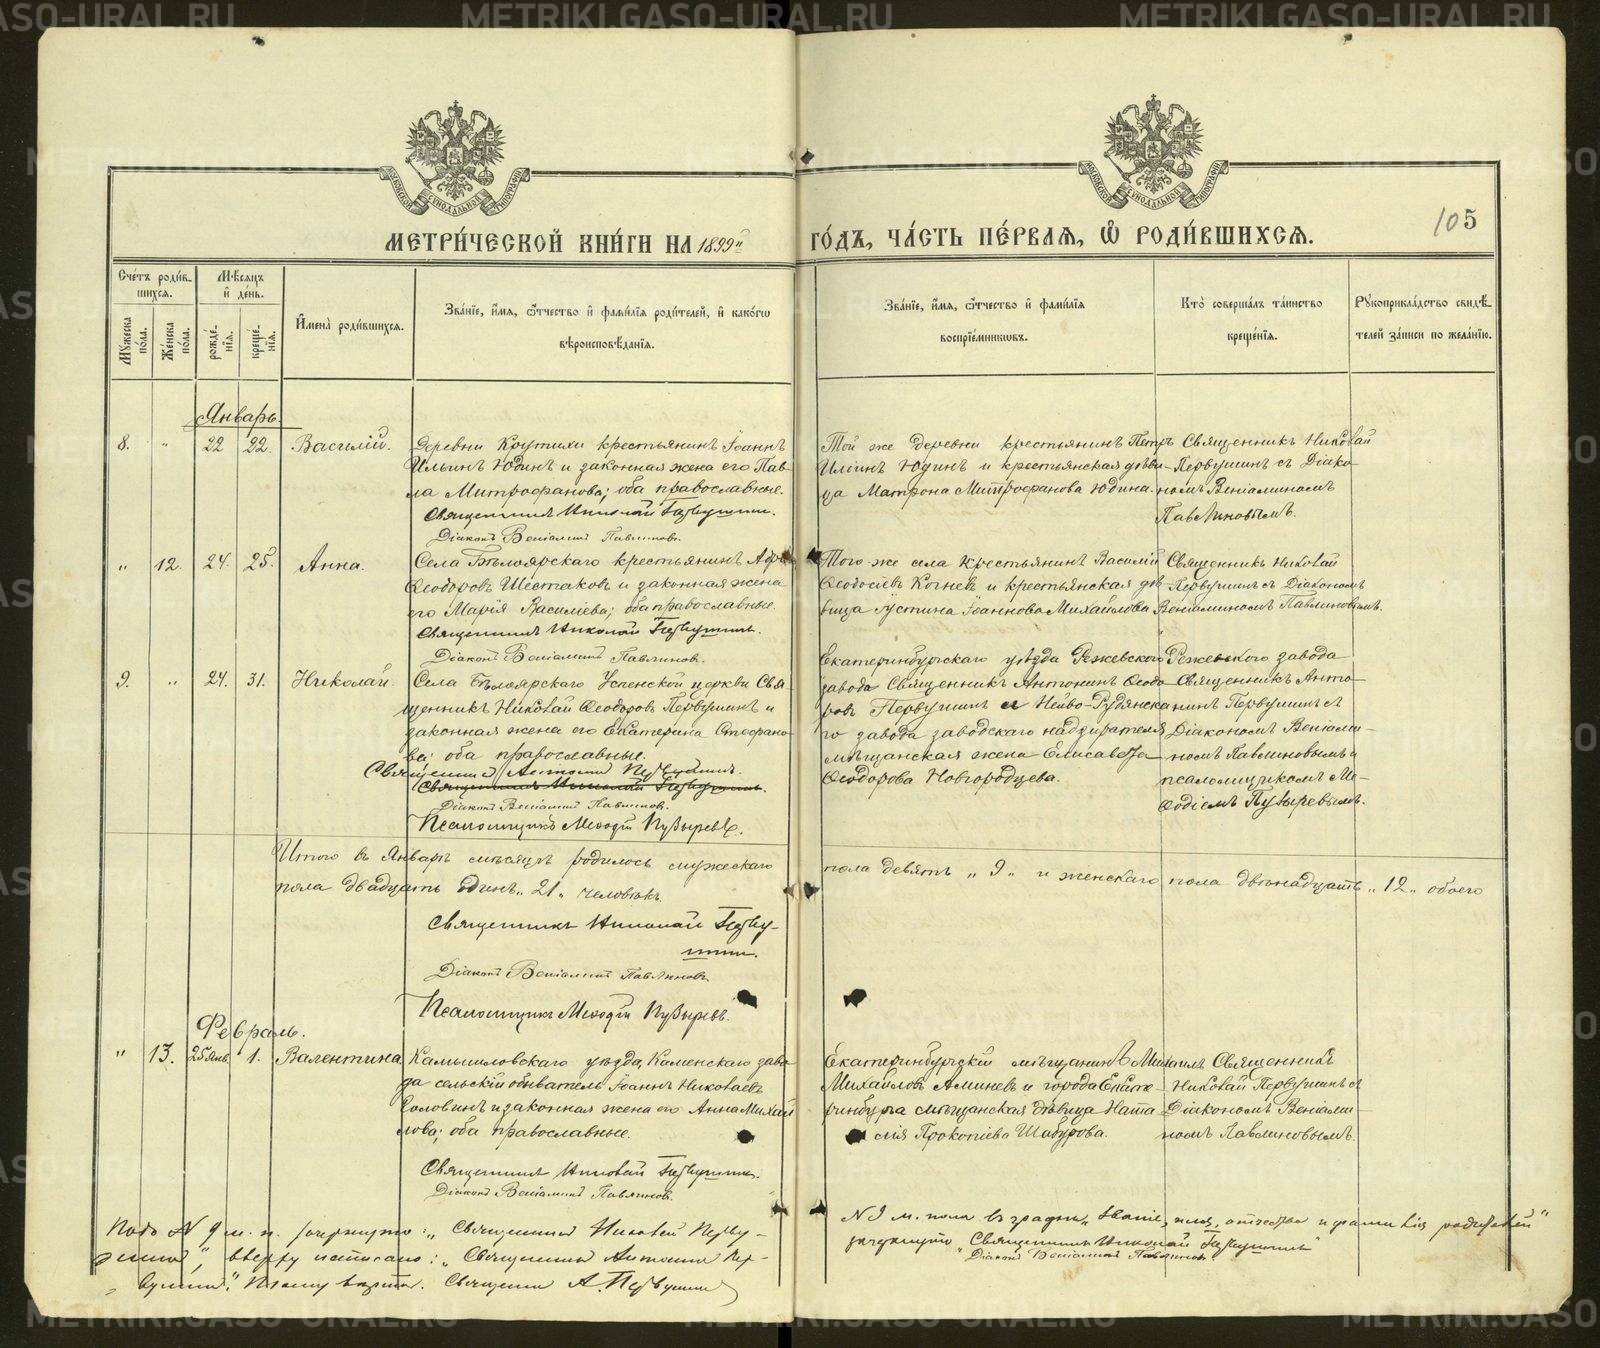 METRIKI.GASO-URAL.RU
МОСКОВСКОЙ СѴНОДАЛЬНОЙ ТИПОГРАФІИ
МОСКОВСКОЙ СѴНОДАЛЬНОЙ ТИПОГРАФІИ
МЕТРИ́ЧЕСКОЙ КНИ́ГИ НА 1899й
ГО́ДЪ, ЧА́СТЬ ПЕ́РВАЯ, Ѡ РОДИ́ВШИХСЯ.
105
Сче́тъ роди́в-
шихся.
Мꙋ́жеска по́ла.
Же́нска по́ла.
Мѣ́сяцъ
и де́нь.
рожде́-
нїя.
креще́-
нїя.
Имена̀ роди́вшихся.
Зва́нїе, и́мя, ѻ҆́тчество и фамѝлїя роди́телей, и како́гѡ
вѣроисповѣ́данїя.
Зва́нїе, и́мя, ѻ҆́тчество и фамѝлїя
воспрїе́мникѡвъ.
Кто̀ соверша́лъ та́инство
креще́нїя.
Рꙋкоприкла́дство свидѣ́-
телей за́писи по жела́нїю.
Январь.
8. " 22 22. Василій.
Деревни Крутихи крестьянинъ Іоаннъ
Ильинъ Юдинъ и законная жена его Пав-
ла Митрофанова; оба православные.
Священникъ Николай Первушинъ.
Діаконъ Веніаминъ Павлиновъ.
Той же деревни крестьянинъ Петръ
Ильинъ Юдинъ и крестьянская дѣви-
ца Матрона Митрофанова Юдина.
Священникъ Николай
Первушинъ съ Діако-
номъ Веніаминомъ
Павлиновымъ.
" 12. 24. 25. Анна.
Села Бѣлоярскаго крестьянинъ
Ѳеодоровъ Шестаковъ и законная жена
его Марія Василіева; оба православные.
Священникъ Николай Первушинъ.
Діаконъ Веніаминъ Павлиновъ.
Того же села крестьянинъ Василій
Ѳеодосіевъ Кочневъ и крестьянская дѣ-
вица Іустина Іоаннова Михайлова
Священникъ Николай
Первушинъ съ Діакономъ
Веніаминомъ Павлиновымъ.
9. " 24. 31. Николай.
Села Бѣлоярскаго Успенской церкви Свя-
щенникъ Николай Ѳеодоровъ Первушинъ и
законная жена его Екатерина Стефано-
ва; оба православные.
Священникъ Антонинъ Первушинъ.
Священникъ Николай Первушинъ.
Діаконъ Веніаминъ Павлиновъ.
Псаломщикъ Меѳодій Пузыревъ.
Екатеринбургскаго уѣзда Режевскаго
завода Священникъ Антонинъ Ѳеодо-
ровъ Первушинъ и Нейво-Рудянска-
го завода заводскаго надзирателя
мѣщанская жена Елисавета
Ѳеодорова Новгородцева.
Режевскаго завода
Священникъ Анто-
нинъ Первушинъ съ
Діакономъ Веніами-
номъ Павлиновымъ и
псаломщикомъ Ме-
ѳодіемъ Пузыревымъ.
Итого въ Январѣ мѣсяцѣ родилось мужескаго
пола девять „9„ и женскаго пола двѣнадцать „12„ обоего
пола двадцать одинъ „21„ человѣкъ.
Священникъ Николай Перву-
шинъ.
Діаконъ Веніаминъ Павлиновъ.
Псаломщикъ Меѳодій Пузыревъ.
Февраль.
" 13. 25 янв. 1. Валентина
Камышловскаго уѣзда, Каменскаго заво-
да сельскій обыватель Іоаннъ Николаевъ
Головинъ и законная жена его Анна Михай-
лова; оба православные.
Священникъ Николай Первушинъ.
Діаконъ Веніаминъ Павлиновъ.
Екатеринбургскій мѣщанинъ Михаилъ
Михайловъ Аминевъ и города Екате-
ринбурга мѣщанская дѣвица Ната-
лія Прокопіева Шабурова.
Священникъ
Николай Первушинъ съ
Діакономъ Веніами-
номъ Павлиновымъ.
Подъ № 9 м. п. зачеркнуто: „Священникъ Николай Перву-
шинъ", вверху написано: „Священникъ Антонинъ Пер-
вушинъ". Священникъ А. Первушинъ
№ 9 м. пола въ графѣ „Званіе, имя, отчество и фамилія родителей"
зачеркнуто „Священникъ Николай Первушинъ"
Діаконъ Веніаминъ Павлиновъ.